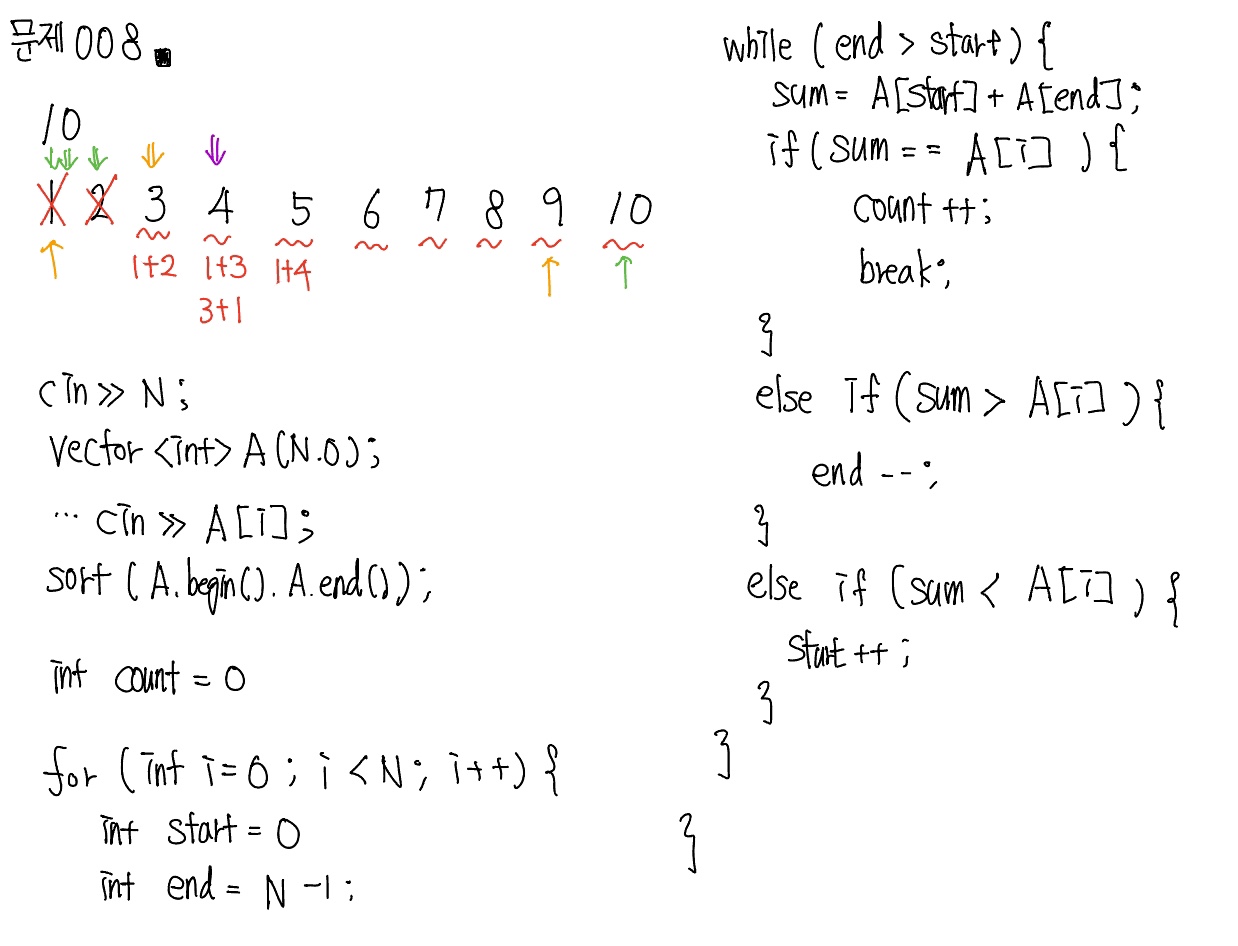 문제 008.
10
1 2 3 4 5 6 7 8 9 10
1+2 1+3 1+4
3+1
cin >> N;
vector <int> A(N.0);
... cin >> A[i];
sort (A.begin(). A.end());
int count = 0
for (int i=0; i<N; i++) {
int start = 0
int end = N-1;
while (end > start) {
sum = A[start] + A[end];
if (sum == A[i]) {
count ++;
break;
}
else if (sum > A[i]) {
end --;
}
else if (sum < A[i]) {
start ++;
}
}
}